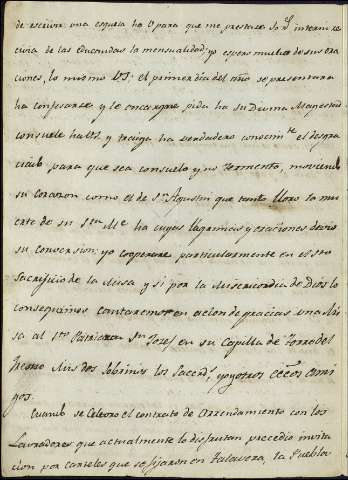 de escrivir una esquela ha O para que me prestase So D.ⁿ interin re
civia de las Educandas la mensualidad; yo espero mucho de sus ora
ciones, lo mismo VS: el primer dia del año se presentara
ha confesarse y le encargare pida ha su Divina Magestad
consuele ha y traiga ha verdadero conocim.to el desgra
ciado para que sea consuelo y no tormento, moviendo
su corazon como el de S.n Agustin que tanto lloro la mu
erte de su S.ta M.e ha cuyas lagrimas y oraciones devio
su conversion; yo cooperare particularmente en el S.to
Sacrificio de la Misa y si por la Misericordia de Dios lo
conseguimos cantaremos en acion de gracias una Mi
sa al S.to Patriarca S.n Josef en su Capilla de Torre del
Fresno Mis dos Sobrinos los Sacerd.s, yo y otros Ami
gos.
Cuando se Celebro el contrato de Arrendamiento con los
Lavradores que actualmente lo disfrutan precedio invita
cion por carteles que se fijaron en Talavera, la Puebla